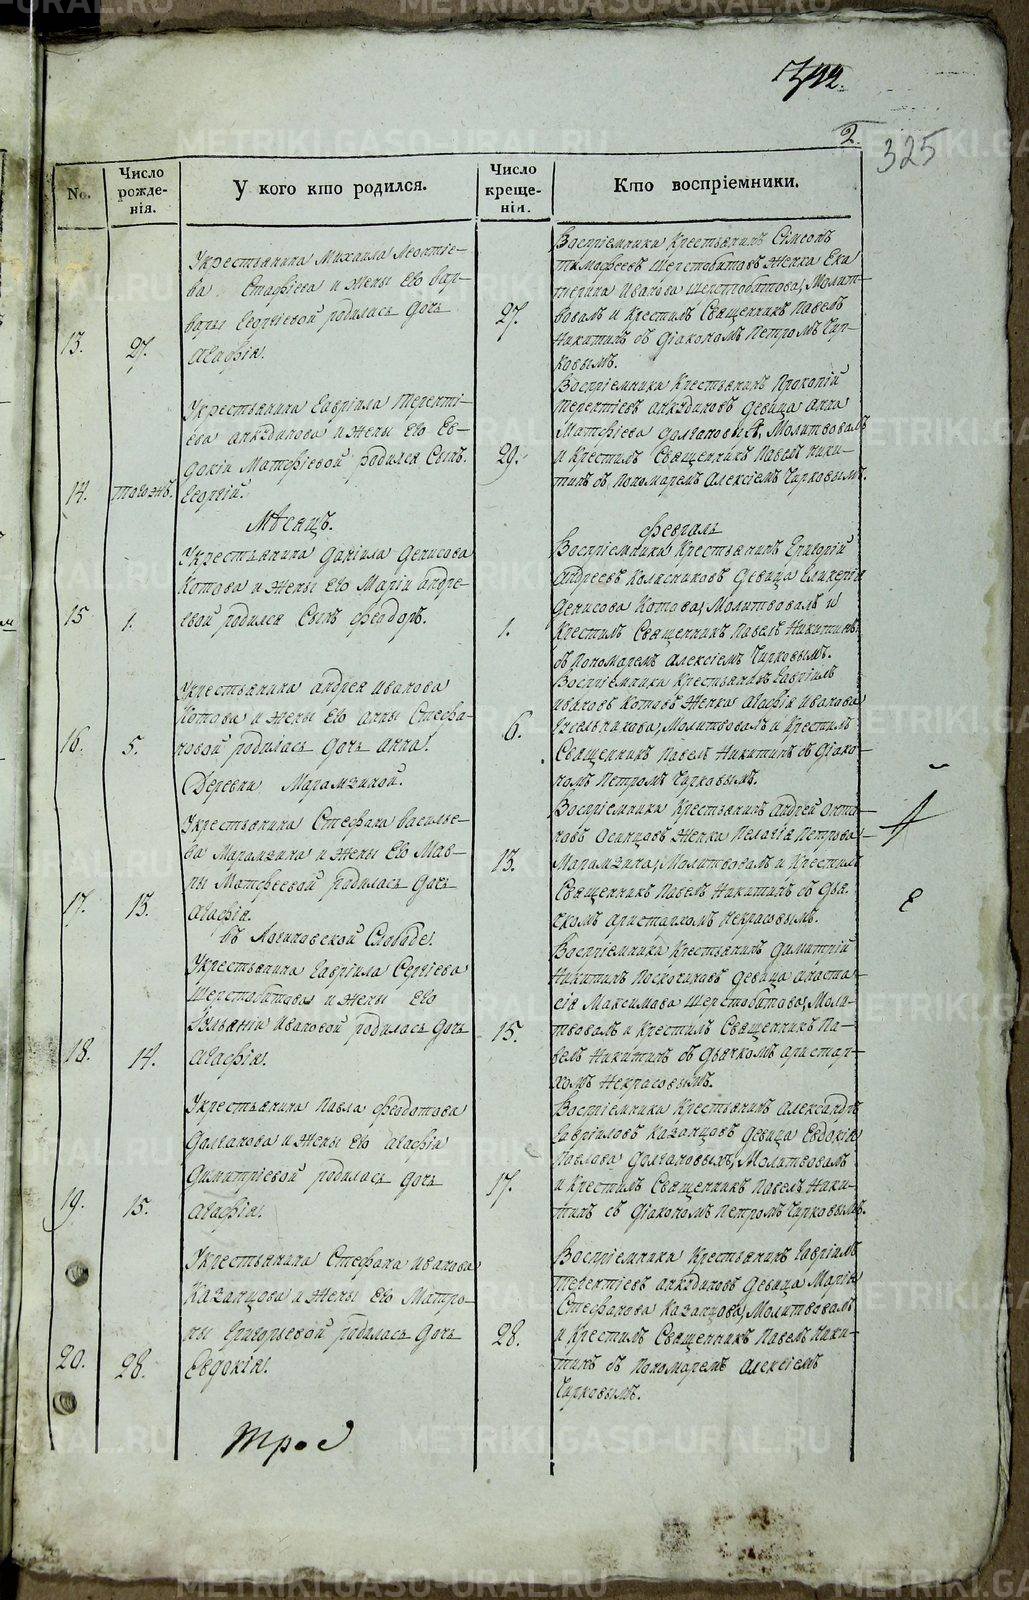 342.
2.
325
No.
Число рожде-
нія.
У кого кто родился.
Число креще-
нія.
Кто воспріемники.
13.
27.
Укрестьянина Михаила Леонтіе-
ва Евстафіева и жены Его Вар-
вары Георгіевой родилась дочь
Агафія.
27.
Воспріемники Крестьянинъ Сімеонъ
Тимофеевъ Шерстобитовъ Женка Ека
терина Иванова Шерстобитова, Молит-
вовалъ и Крестилъ Священникъ Павелъ
Никитинъ съ Діакономъ Петромъ Чир-
ковымъ.
14.
тогожъ.
Укрестьянина Гавріила Теренті-
ева Анкудинова и жены Его Ев-
докіи Матфіевой родился Сынъ.
Георгій.
29.
Воспріемники Крестьянинъ Прокопій
Терентіевъ Анкудиновъ Девица Анна
Матфіева Долганова, Молитвовалъ
и Крестилъ Священникъ Павелъ Ники-
тинъ съ Пономаремъ Алексіемъ Чирковымъ.
Мѣсяцъ.
Февраль
15
1.
Укрестьянина Даніила Денисова
Котова и жены Его Маріи Андре-
евой родился Сынъ Феодоръ.
1.
Воспріемники Крестьянинъ Григорій
Андреевъ Колясниковъ Девица Гликерія
Денисова Котова, Молитвовалъ и
Крестилъ Священникъ Павелъ Никитинъ
съ Пономаремъ Алексіемъ Чирковымъ.
16.
5.
Укрестьянина Андрея Иванова
Котова и жены Его Анны Стефа-
новой родилась дочь Анна.
6.
Воспріемники Крестьянинъ Гавріилъ
Ивановъ Котовъ Женка Агафія Иванова
Молитвовалъ и Крестилъ
Священникъ Павелъ Никитинъ съ Діако-
номъ Петромъ Чирковымъ.
Деревни Марамзиной.
17.
13.
Укрестьянина Стефана Василье-
ва Марамзина и жены Его Мав-
ры Матфеевой родилась дочь
Агафія.
13.
Воспріемники Крестьянинъ Андрей Анто-
новъ Осинцовъ Женка Пелагія Петрова
Марамзина, Молитвовалъ и Крестилъ
Священникъ Павелъ Никитинъ съ Дья-
комъ Аристархомъ Некрасовымъ.
Въ Логиновской Слободе.
18.
14.
Укрестьянина Гавріила Сергіева
Шерстобитова и жены Его
Ульяніи Ивановой родилась дочь
Агафія.
15.
Воспріемники Крестьянинъ Димитрій
Никитинъ Поскочиновъ Девица Анаста-
сія Максимова Шерстобитова, Моли-
твовалъ и Крестилъ Священникъ Па-
велъ Никитинъ съ Дьячкомъ Аристар-
хомъ Некрасовымъ.
19.
15.
Укрестьянина Павла Феодотова
Долганова и жены Его Агафіи
Димитріевой родилась дочь
Агафія.
17.
Воспріемники Крестьянинъ Александръ
Гавріиловъ Казанцовъ Девица Евдокія
Павлова Долгановыхъ, Молитвовалъ
и Крестилъ Священникъ Павелъ Ники-
тинъ съ Діакономъ Петромъ Чирковымъ.
20.
28.
Укрестьянина Стефана Иванова
Казанцова и жены Его Матро-
ны Григорьевой родилась дочь
Евдокія.
28.
Воспріемники Крестьянинъ Гавріилъ
Терентіевъ Анкудиновъ Девица Марія
Стефанова Казанцова, Молитвовалъ
и Крестилъ Священникъ Павелъ Ники-
тинъ съ Пономаремъ Алексіемъ
Чирковымъ.
METRIKI.GASO-URAL.RU